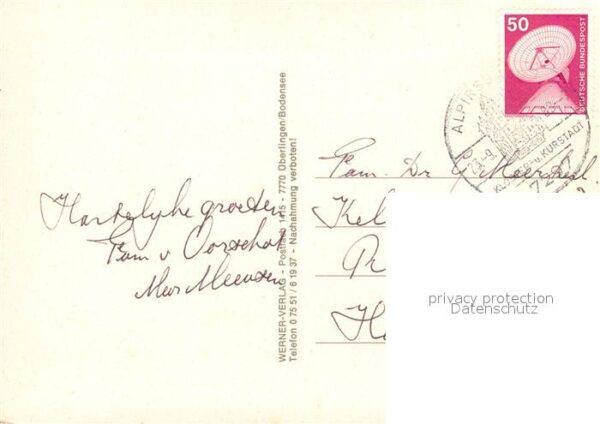 50
DEUTSCHE BUNDESPOST
ALPIRS
23.-9.
KLOSTER- u. KURSTADT
7297
WERNER-VERLAG - Postfach 1415 - 7770 Überlingen/Bodensee
Telefon 0 75 51 / 6 19 37 - Nachahmung verboten!
Hartelijke groeten
Fam v Oorschot
Fam. Dr
Kel
Ha
privacy protection
Datenschutz